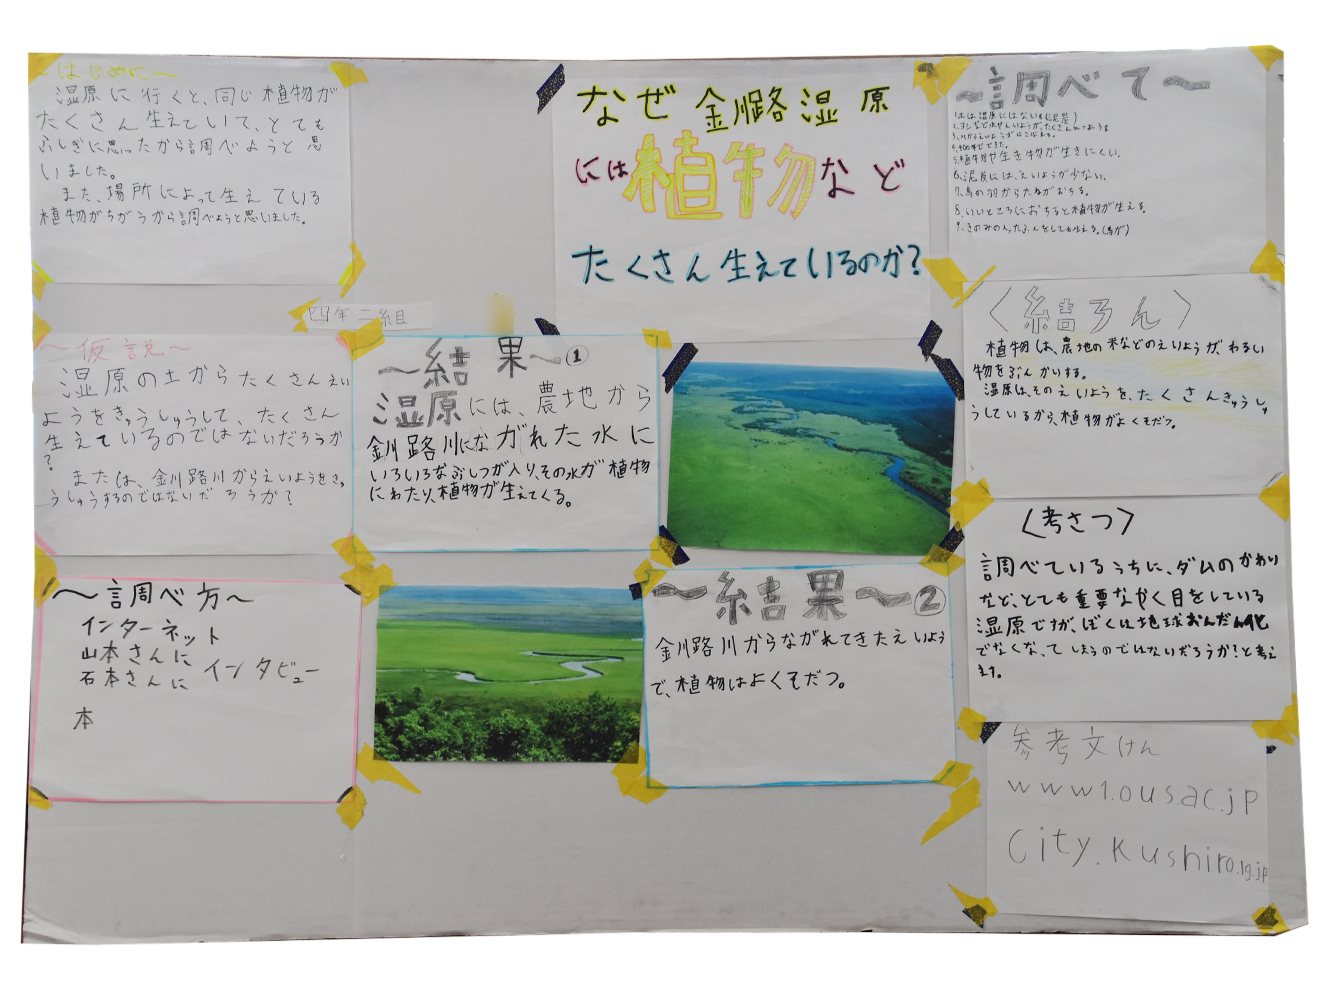 ～はじめに～
湿原に行くと、同じ植物が
たくさん生えていて、とても
ふしぎに思ったから調べようと思
いました。
また、場所によって生えている
植物がちがうから調べようと思いました。
四年二組
～仮説～
湿原の土からたくさんえい
ようをきゅうしゅうして、たくさん
生えているのではないだろうか
?
または、釧路川からえいようをき
うしゅうするのではないだろうか?
～調べ方～
インターネット
山本さんに
石本さんに インタビュー
本
なぜ釧路湿原
には植物など
たくさん生えているのか?
～結果～①
湿原には、農地から
釧路川にながれた水に
いろいろなぶしつが入り、その水が植物
にわたり、植物が生えてくる。
～結果～②
釧路川からながれてきたえいよう
で、植物はよくそだつ。
～調べて～
1.土は、湿原にはない(泥炭)
4.4000年でできた。
5.植物や生き物が生きにくい。
6.泥炭には、えいようが少ない。
7.鳥の羽からたねがおちる。
8.いいところにおちると植物が生える。
9.きのみの入ったふんをしても生える。(鳥が)
〈結ろん〉
植物は、農地の米などのえいようが、わるい
物をぶんかいする。
湿原は、そのえいようを、たくさんきゅうしゅ
うしているから、植物がよくそだつ。
〈考さつ〉
調べているうちに、ダムのかわり
など、とても重要なやく目をしている
湿原ですが、ぼくは地球おんだん化
でなくなってしまうのではないだろうか?と考え
ます。
参考文けん
www1.ous.ac.jp
City.Kushiro.lg.jp